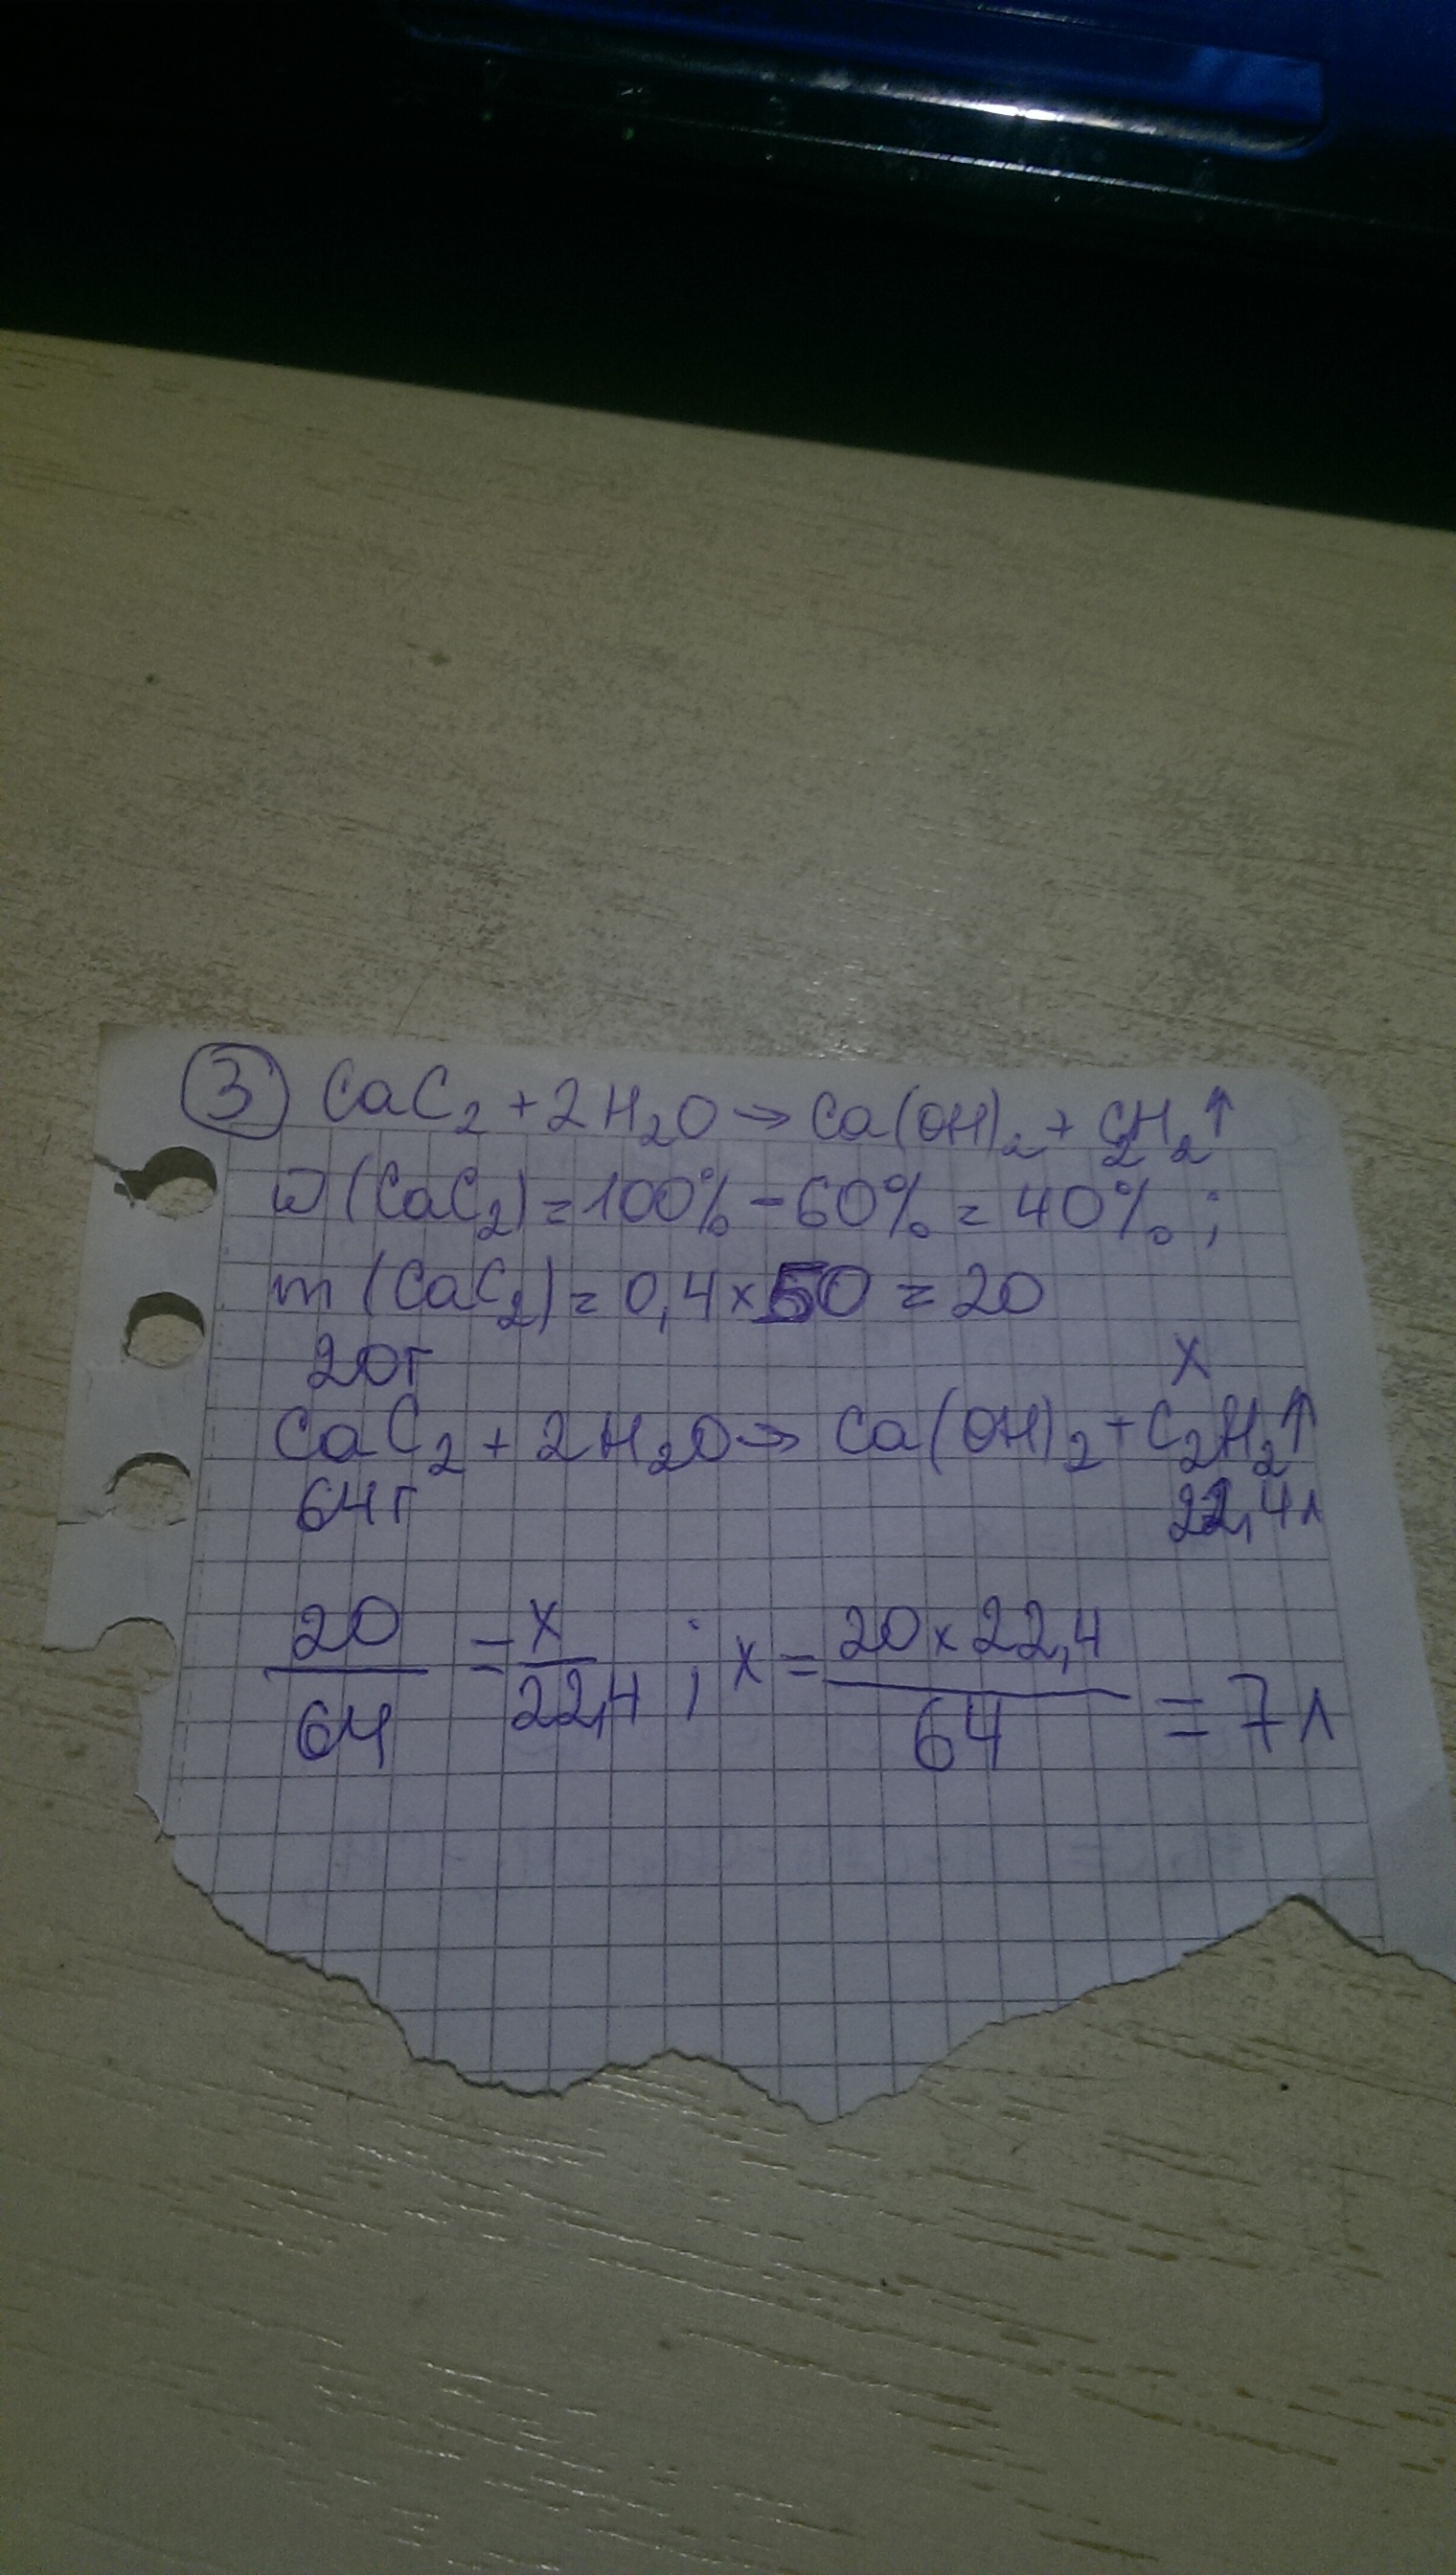 3 CaC2 + 2H2O → Ca(OH)2 + C2H2↑
ω(CaC2) = 100% - 60% = 40% ;
m(CaC2) = 0,4 × 50 = 20
20г x
CaC2 + 2H2O → Ca(OH)2 + C2H2↑
64г 22,4л
20/64 = x/22,4 ; x = 20×22,4/64 = 7л